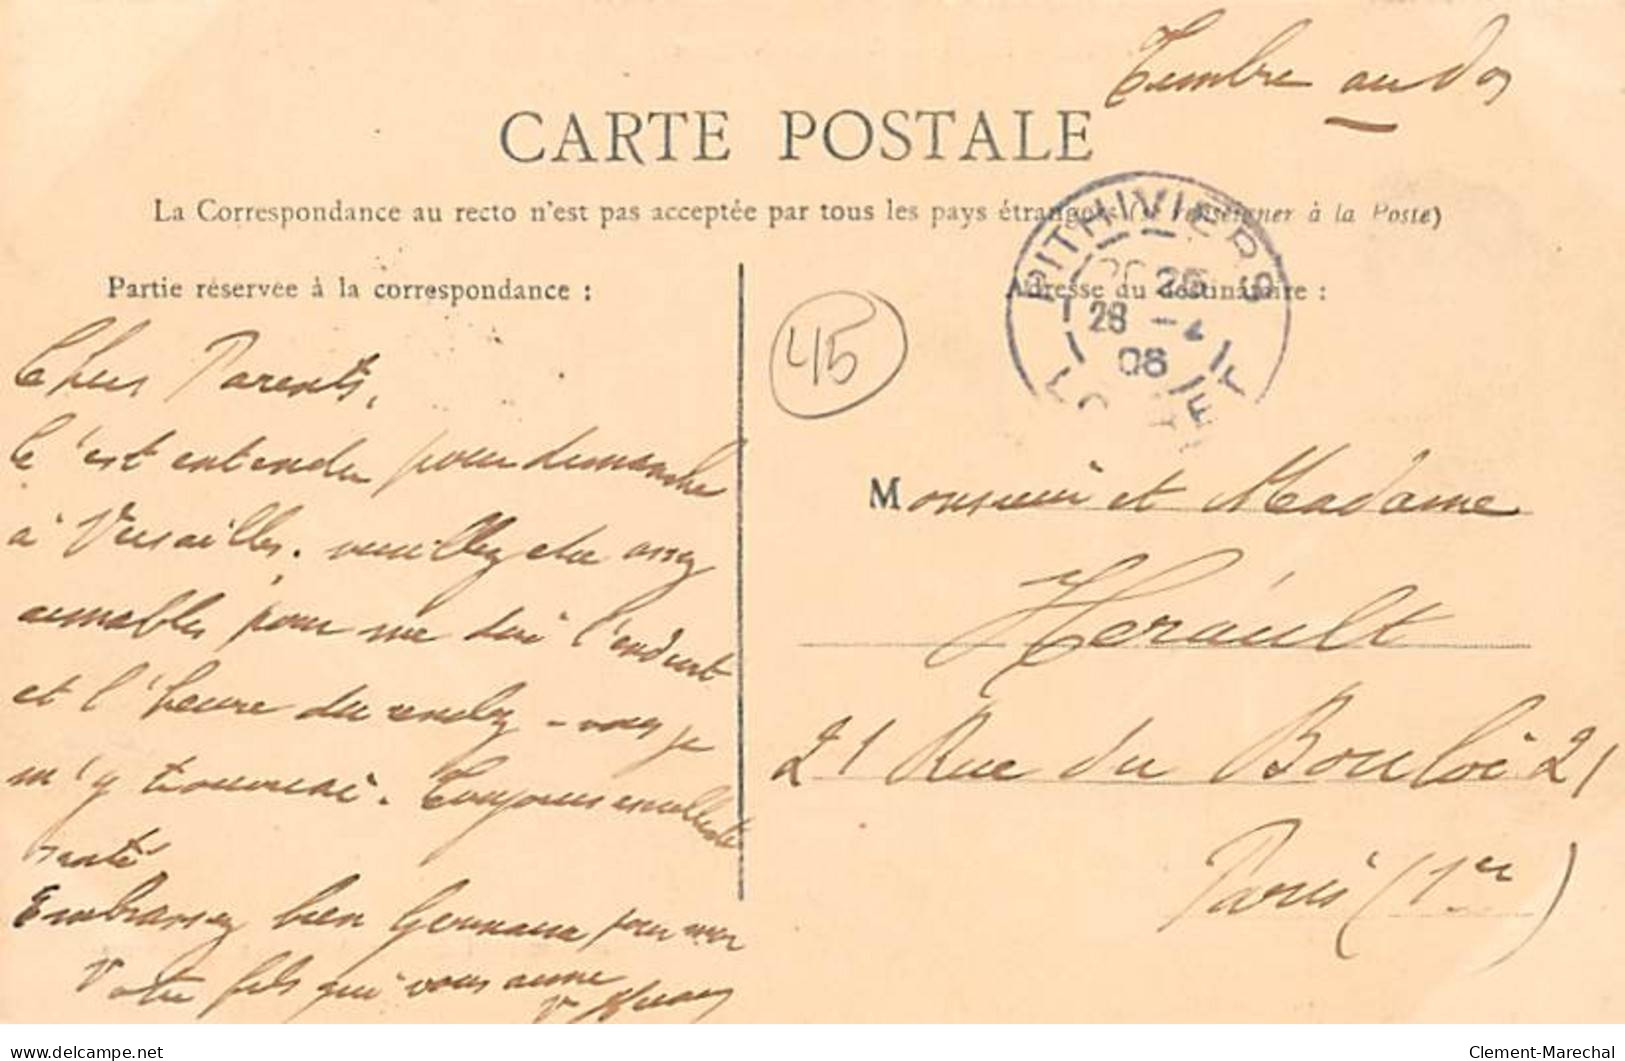 Timbre au dos
CARTE POSTALE
La Correspondance au recto n'est pas acceptée par tous les pays étrangers (se renseigner à la Poste)
Partie réservée à la correspondance :
Chers Parents,
C'est entendu pour dimanche
à Versailles. veuillez etre assez
aimables pour me dire l'endroit
et l'heure du rendez-vous je
m'y trouverai. Toujours excellente
santé
Embrassez bien Germaine pour moi
Votre fils qui vous aime
45
PITHIVIERS
26
28 -4
06
LOIRET
Adresse du destinataire :
Monsieur et Madame
Hérault
21 Rue du Bouloi 21
Paris (1er)
delcampe.net
Clement-Marechal